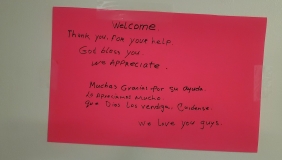 Welcome.
Thank you. For your help.
God bless you.
we APPreciate.
Muchas Gracias Por su ayuda.
Lo Apreciamos Mucho
Que Dios Los vendiga.
we Love you guys.